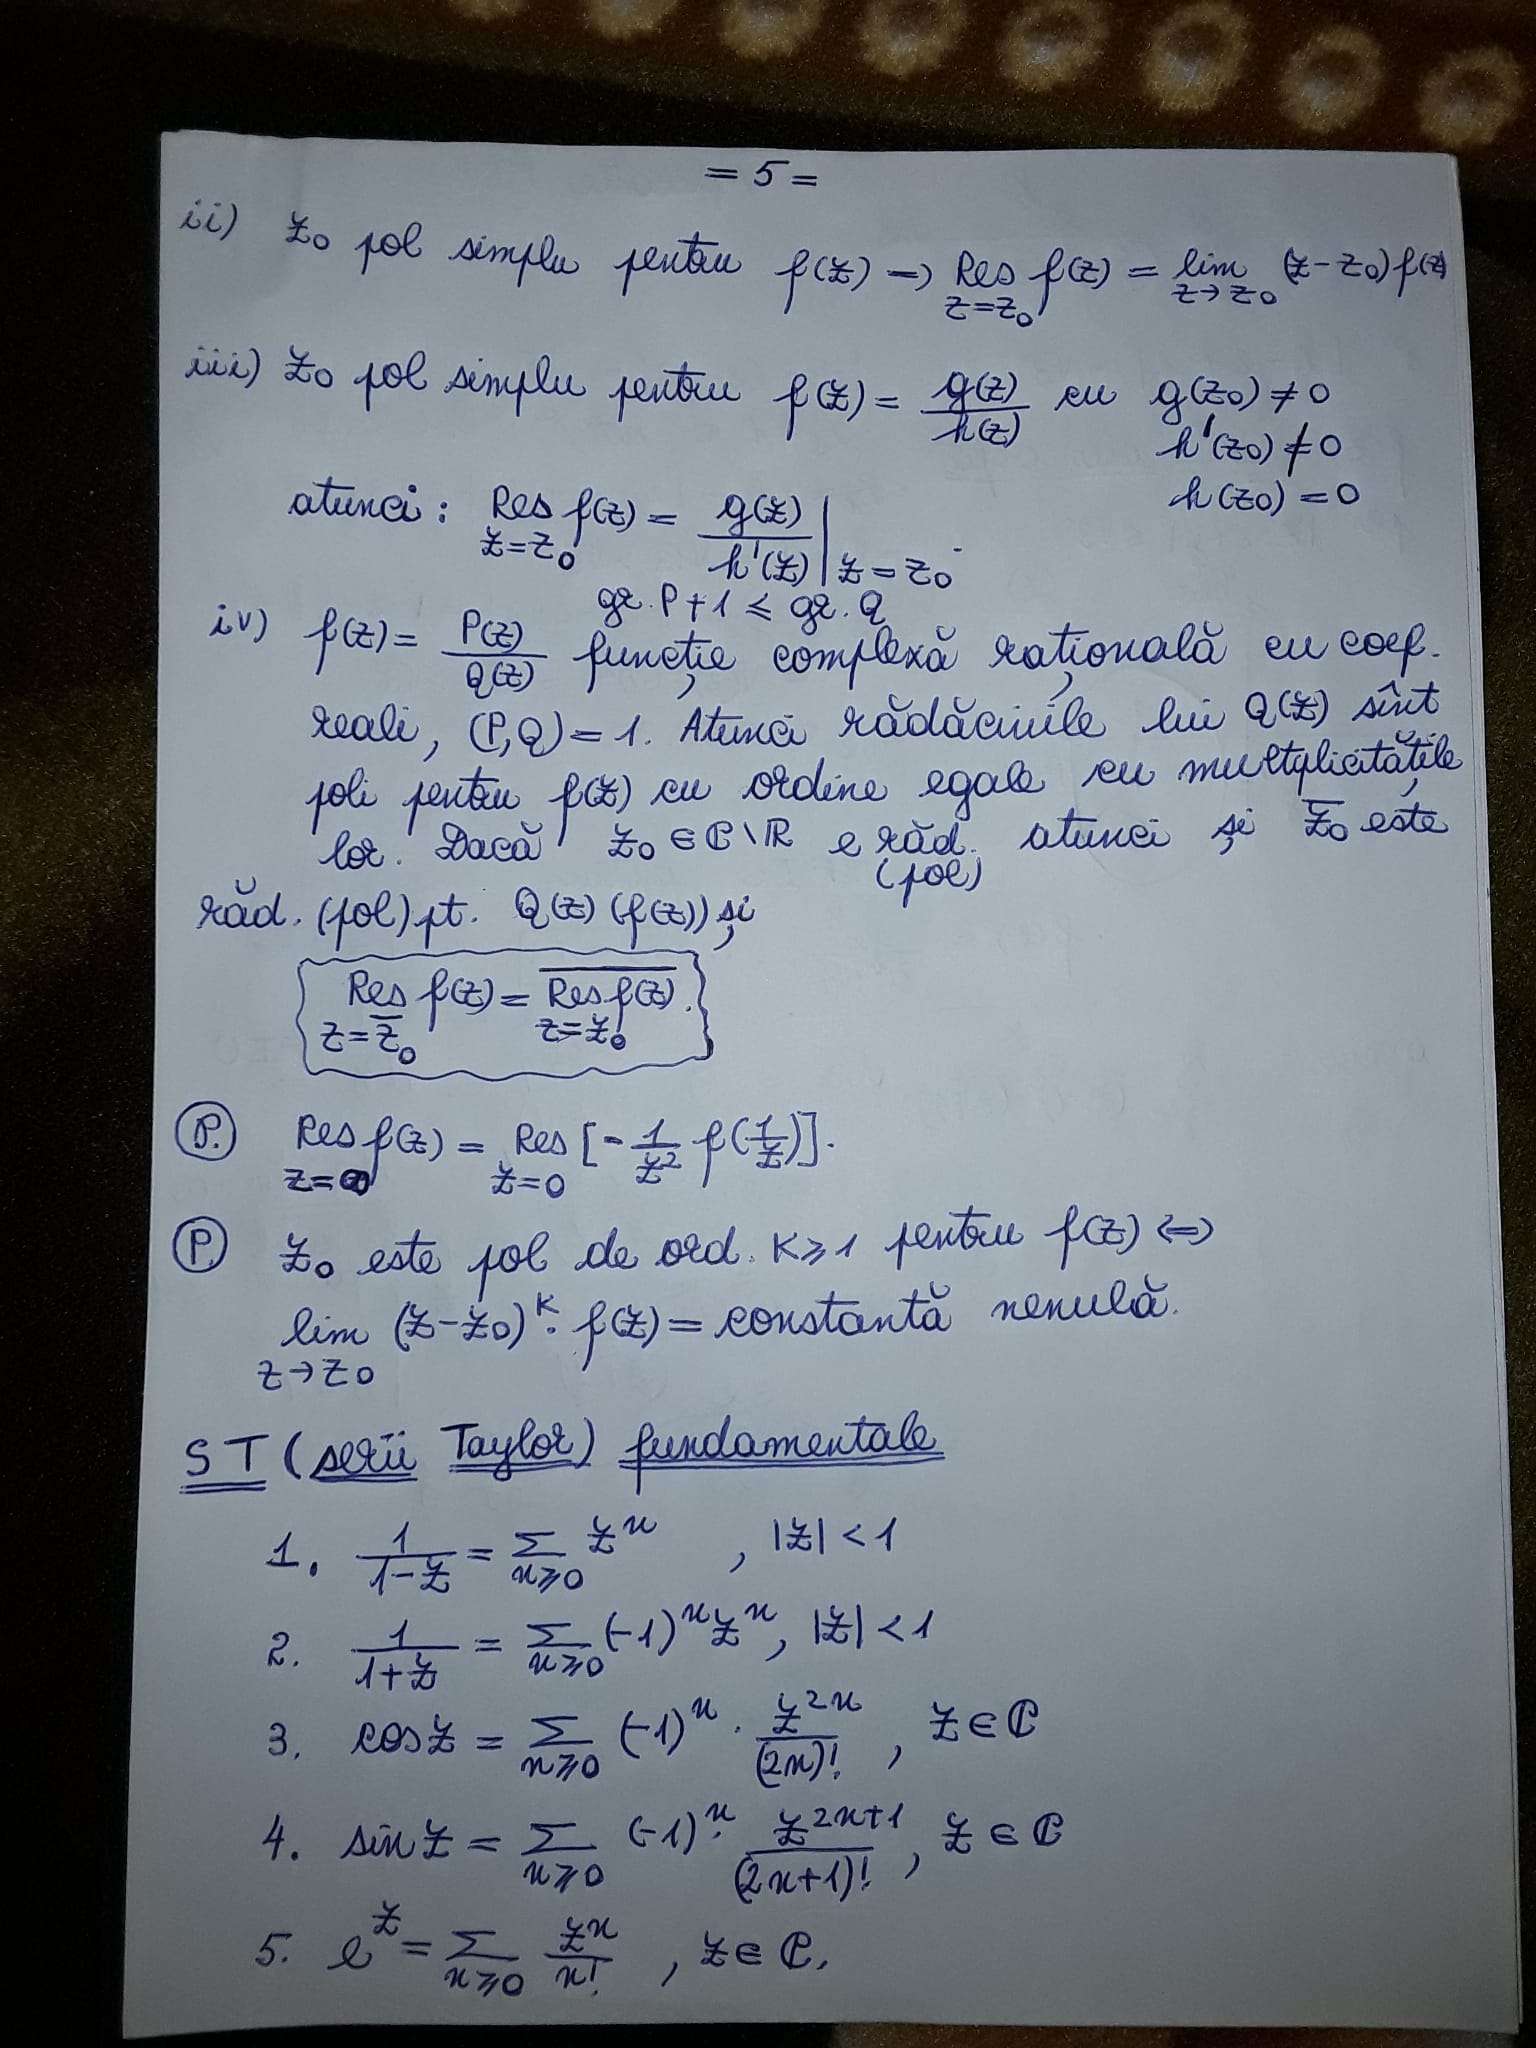 = 5 =
ii) z₀ pol simplu pentru f(z) → Res f(z) = lim (z-z₀) f(z)
z=z₀ z→z₀
iii) z₀ pol simplu pentru f(z) = g(z)/h(z) cu g(z₀) ≠ 0
h'(z₀) ≠ 0
h(z₀) = 0
atunci: Res f(z) = g(z)/h'(z) | z=z₀.
z=z₀
gr. P+1 ≤ gr. Q
iv) f(z) = P(z)/Q(z) funcție complexă rațională cu coef.
reali, (P,Q)=1. Atunci rădăcinile lui Q(z) sînt
poli pentru f(z) cu ordine egale cu multiplicitățile
lor. Dacă z₀ ∈ ℂ\ℝ e răd. atunci și z̄₀ este
(pol)
răd. (pol) pt. Q(z) (f(z)) și
Res f(z) = \overline{Res f(z)}.
z=z̄₀ z=z₀
(P.) Res f(z) = Res [-1/z² f(1/z)].
z=∞ z=0
(P) z₀ este pol de ord. K≥1 pentru f(z) ⇔
lim (z-z₀)^K · f(z) = constantă nenulă.
z→z₀
ST (serii Taylor) fundamentale
1. 1/(1-z) = Σ_{n≥0} zⁿ , |z|<1
2. 1/(1+z) = Σ_{n≥0} (-1)ⁿ zⁿ, |z|<1
3. cos z = Σ_{n≥0} (-1)ⁿ · z^{2n}/(2n)! , z∈ℂ
4. sin z = Σ_{n≥0} (-1)ⁿ · z^{2n+1}/(2n+1)! , z∈ℂ
5. e^z = Σ_{n≥0} zⁿ/n! , z∈ℂ.